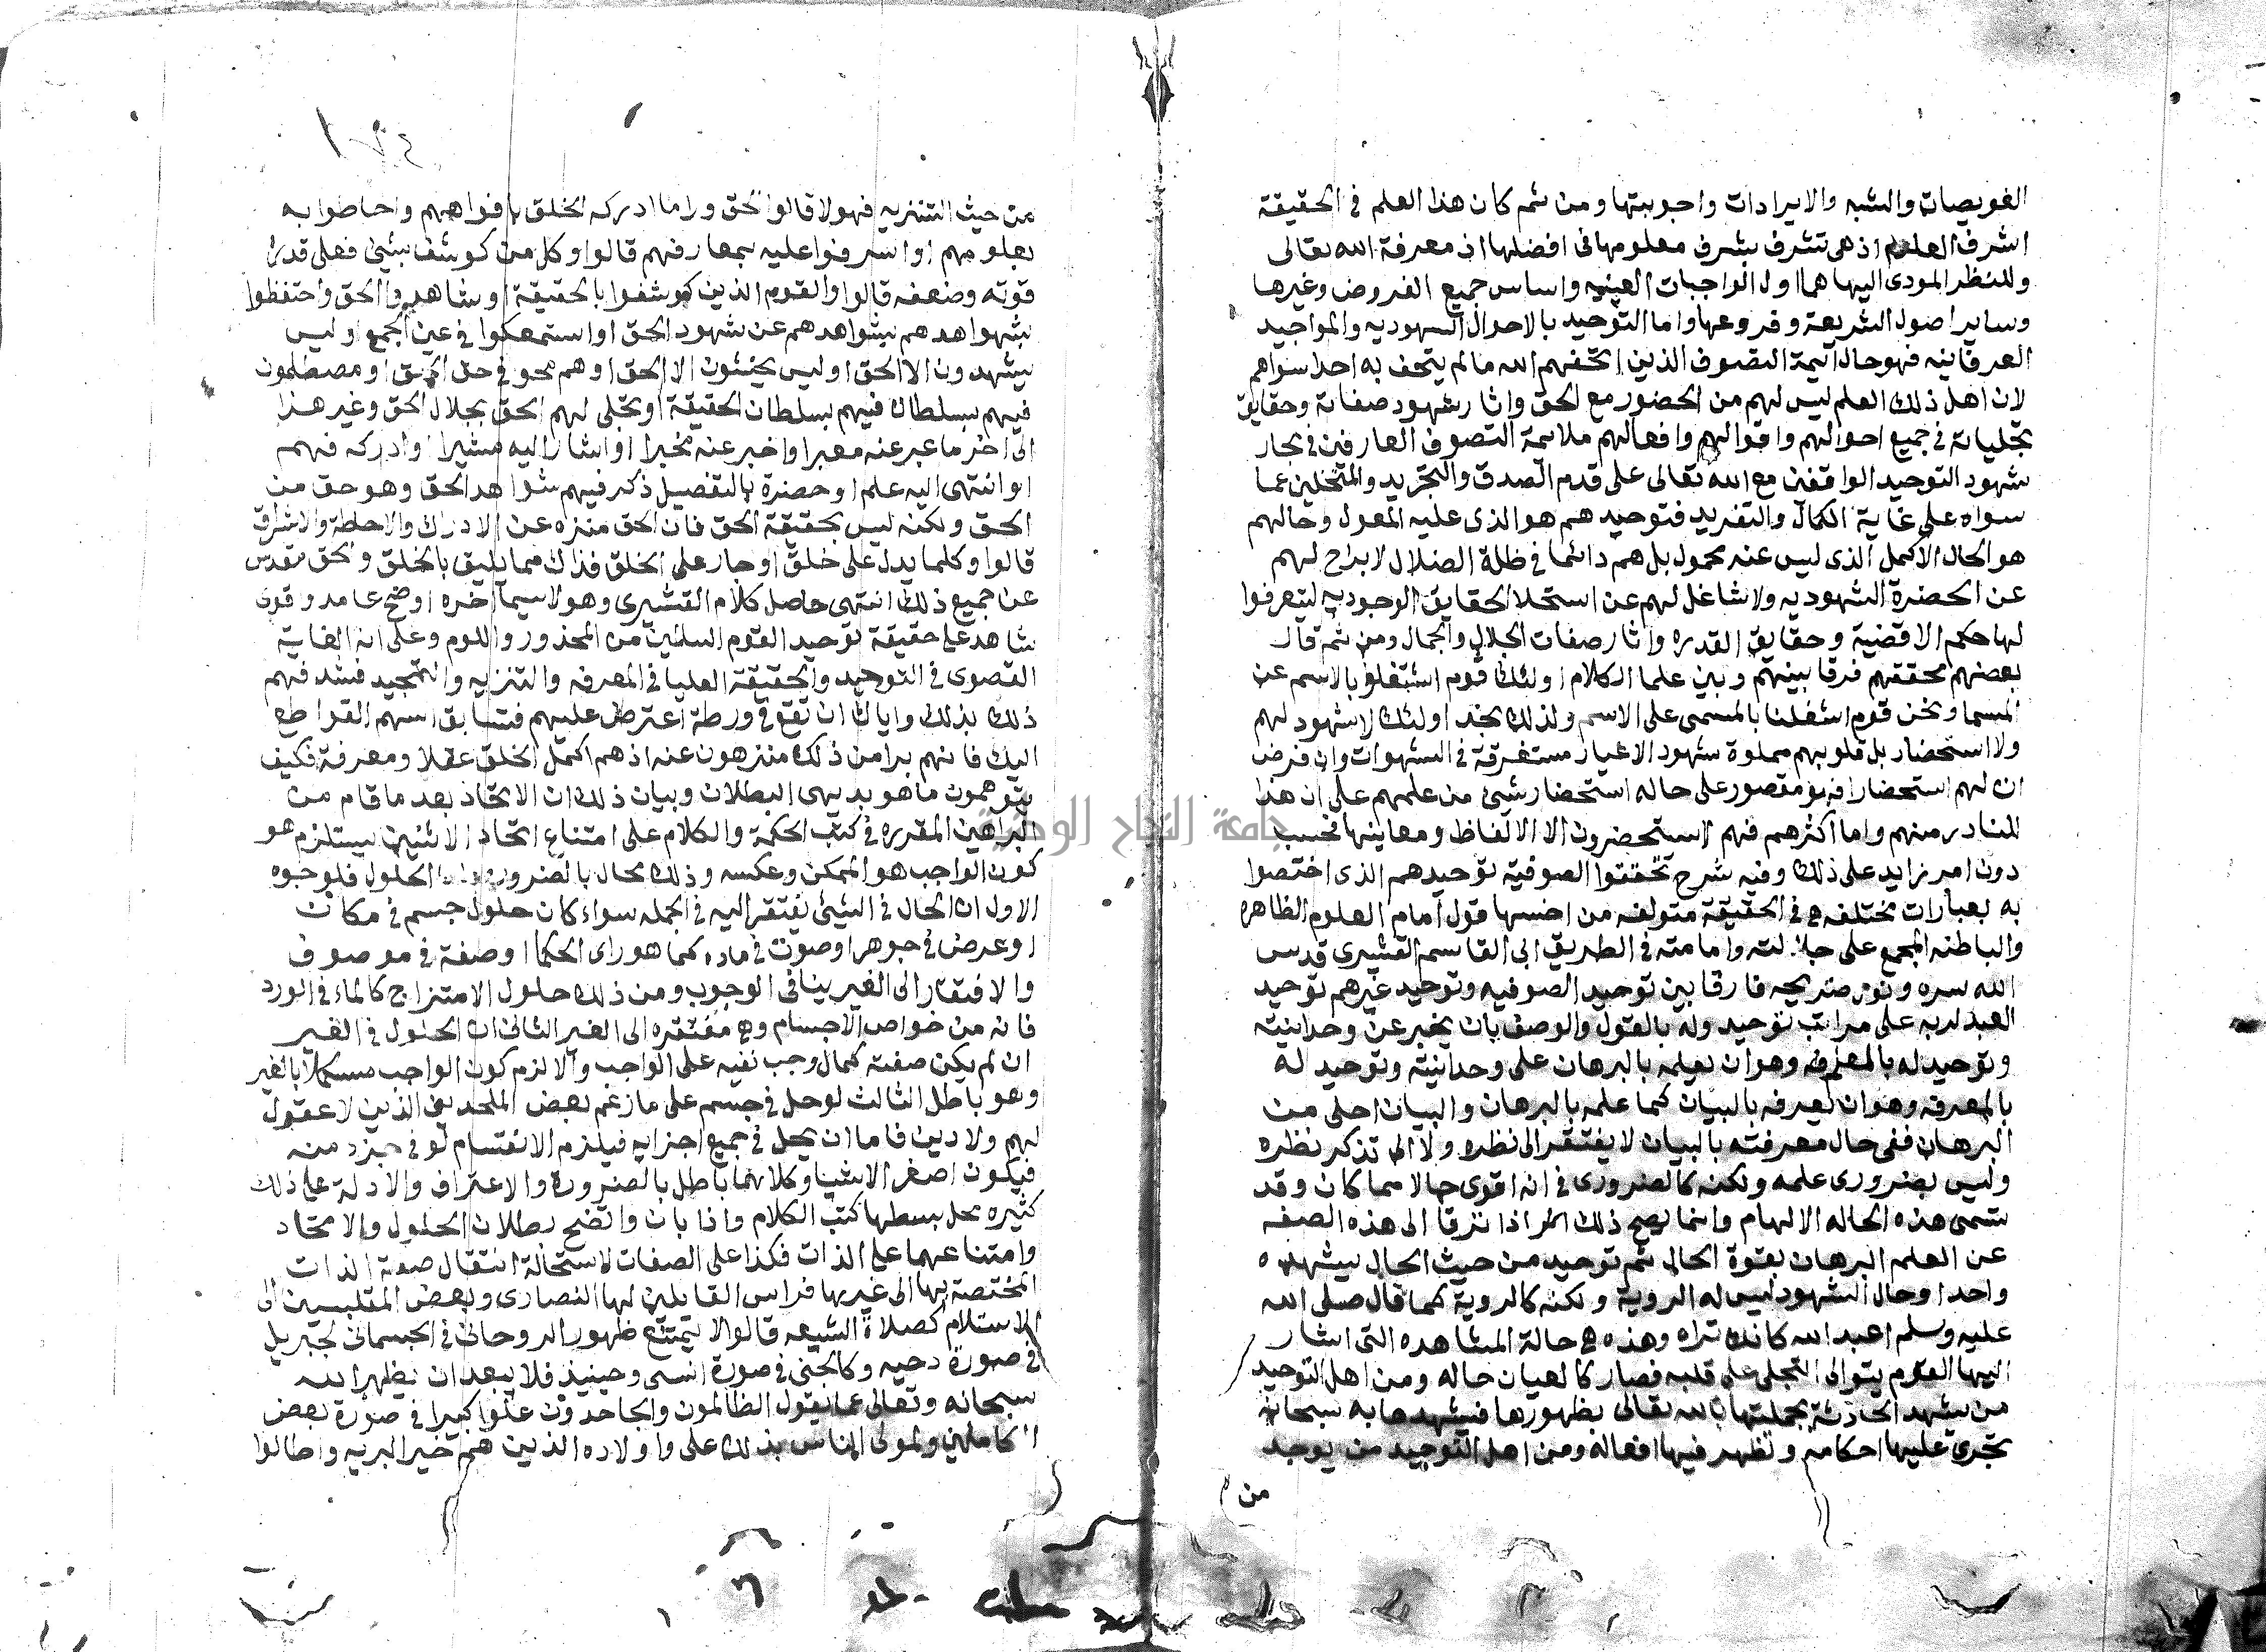 العويصات والشبه والايرادات واجوبتها ومن ثم كان هذا العلم في الحقيقة
اشرف العلوم اذ هي تشرف بشرف معلومها في افضلها اذ معرفة الله تعالى
وللنظر المودى اليها هما اول الواجبات العينيه واساس جميع الفروض وغيرها
وساير اصول الشريعة وفروعها واما التوحيد بالاحوال الشهوديه والمواجيد
العرفانيه فهو حال ايمة التصوف الذين اتحفهم الله ما لم يتحف به احدا سواهم
لان اهل ذلك العلم ليس لهم من الحضور مع الحق واثار شهود صفاته وحقايق
تجلياته في جميع احوالهم واقوالهم وافعالهم ملايمة التصوف العارفين في بحار
شهود التوحيد الواقفين مع الله تعالى على قدم الصدق والتجريد والمتخلين عما
سواه على غاية الكمال والتفريد فتوحيدهم هو الذى عليه المعول وحالهم
هو الحال الاكمل الذى ليس عنه محول بل هم دائما في ظلة الضلال لابراح لهم
عن الحضرة الشهوديه ولا شاغل لهم عن استحلا الحقايق الوجوديه ليتعرفوا
لها حكم الاقضية وحقايق القدره واثار صفات الجلال والجمال ومن ثم قال
بعضهم محققهم فرقا بينهم وبين علما الكلام اولئك قوم اشتغلوا بالاسم عن
المسما ونحن قوم اشغلنا بالمسمى على الاسم ولذلك تجد اولئك لا شهود لهم
ولا استحضار بل قلوبهم مملوة شهود الاغيار مستغرقة في الشهوات وان فرض
ان لهم استحضارا فهو مقصور على حاله استحضار شيئ من علمهم على ان هذا
للنادر منهم واما اكثرهم فهم لا يستحضرون الا الالفاظ ومعاينها فحسب
دون امر زايد على ذلك وفيه شرح تحققوا الصوفية توحيدهم الذى اختصوا
به بعبارات مختلفه في الحقيقة متولفه من احسنها قول امام العلوم الظاهره
والباطنه المجمع على جلالته وامامته في الطريق ابى القاسم القشيرى قدس
الله سره ونور ضريحه فارقا بين توحيد الصوفيه وتوحيد غيرهم توحيد
العبد لربه على مراتب توحيد وله بالقول والوصف بان يخبر عن وحدانيته
وتوحيد له بالمعرفه وهو ان يعلمه بالبرهان على وحدانيته وتوحيد له
بالمعرفه وهو ان يعرفه بالبيان كما علمه بالبرهان والبيان احلى من
البرهان ففى حال معرفته بالبيان لا يفتقر الى نظره ولا الى تذكر نظره
وليس بضرورى علمه ولكنه كالضرورى في انه اقوى حالا مما كان وقد
تسمى هذه الحاله الالهام وانما يصح ذلك اذا ترقا الى هذه الصفه
عن العلم البرهان بقوة الحال ثم توحيد من حيث الحال يشهده
واحدا وحال الشهود ليس له الروية ولكنه كالروية كما قال صلى الله
عليه وسلم اعبد الله كانك تراه وهذه هى حالة المشاهده التى اشار
اليها القوم يتوالى التجلى على قلبه فصار كالعيان حاله ومن اهل التوحيد
من يشهد الحادثة بجملتها بالله تعالى بظهورها فيشهدها به سبحانه
تجرى عليها احكامه وتظهر فيها افعاله ومن اهل التوحيد من يوجد
من
من حيث التنزيه فهولا قالوا الحق ورا ما ادركه الخلق بافواههم واحاطوا به
بعلومهم او اشرفوا عليه بمعارفهم قالوا وكل من كوشف بشئ فعلى قدر
قوته وضعفه قالوا والقوم الذين كوشفوا بالحقيقة او شاهدوا الحق واحتفظوا
بشهواهدهم بشواهدهم عن شهود الحق او استمعكوا في عين الجمع او ليس
يشهدون الا الحق او ليس يحسون الا الحق او هم محو في حق الحق او مصطلمون
فيهم بسلطان فيهم بسلطان الحقيقة او تجلى لهم الحق بجلال الحق وغير هذا
الى اخر ما عبر عنه معبر او اخبر عنه مخبرا او اشار اليه مشيرا او ادركه فهم
او انتهى اليه علم او حضره بالتفصيل ذكر فيهم شواهد الحق وهو حق من
الحق ولكنه ليس بحقيقة الحق فان الحق منزه عن الادراك والاحاطة والاشراق
قالوا وكلما يدل على خلق او جار على الخلق فذاك مما يليق بالخلق والحق مقدس
عن جميع ذلك انتهى حاصل كلام القشيرى وهو لاسيما اخره اوضح عامد وقوى
شاهد على حقيقة توحيد القوم السالمين من المحذور واللوم وعلى انه الغاية
القصوى في التوحيد والحقيقة العليا في المعرفه والتنزيه والتمجيد فشد فهم
ذلك بذلك واياك ان تقع في ورطة اعترض عليهم فتسابق اسهم القواطع
اليك فانهم برا من ذلك منزهون عنه اذ هم اكمل الخلق عقلا ومعرفة فكيف
يتوهمون ما هو بديهى البطلان وبيان ذلك ان الاتحاد بعد ما قام من
البراهين المقرره في كتب الحكمة والكلام على امتناع اتحاد الاثنين يستلزم هو
كون الواجب هو الممكن وعكسه وذلك محال بالضروره واما الحلول فلوجوه
الاول ان الحال في الشيئ يفتقر اليه في الجمله سواء كان حلول جسم في مكان
او عرض في جوهر او صوت في ماده كما هو راى الحكما او صفة في موصوف
والافتقار الى الغير ينافى الوجوب ومن ذلك حلول الامتزاج كالماء في الورد
فانه من خواص الاجسام وهى مفتقره الى الغير الثانى ان الحلول في الغير
ان لم يكن صفة كمال وجب نفيه على الواجب والا لزم كون الواجب مستكملا بالغير
وهو باطل الثالث لو حل في جسم على ما زعم بعض الملحدين الذين لا عقول
لهم ولا دين فاما ان يحل في جميع اجزايه فيلزم الانقسام او في جزء منه
فيكون اصغر الاشيا وكلاهما باطل بالضرورة والاعتراف والادلة على ذلك
كثيره محل بسطها كتب الكلام واذا بان واتضح بطلان الحلول والاتحاد
وامتناعهما على الذات فكذا على الصفات لاستحالة انتقال صفة الذات
المختصة بها الى غيرها فراس القايلين لها النصارى وبعض المقلبسين الى
الاستلام كصلاة الشيعه قالوا لا يمتنع ظهور الروحانى في الجسمانى كجبريل
في صورة دحيه وكالجنى في صورة انسى وحينيذ فلا يبعد ان يظهر الله
سبحانه وتعالى عما يقول الظالمون والجاحدون علوا كبيرا في صورة بعض
الكاملين ولمولى الناس بذلك على واولاده الذين هم خير البريه واطالوا